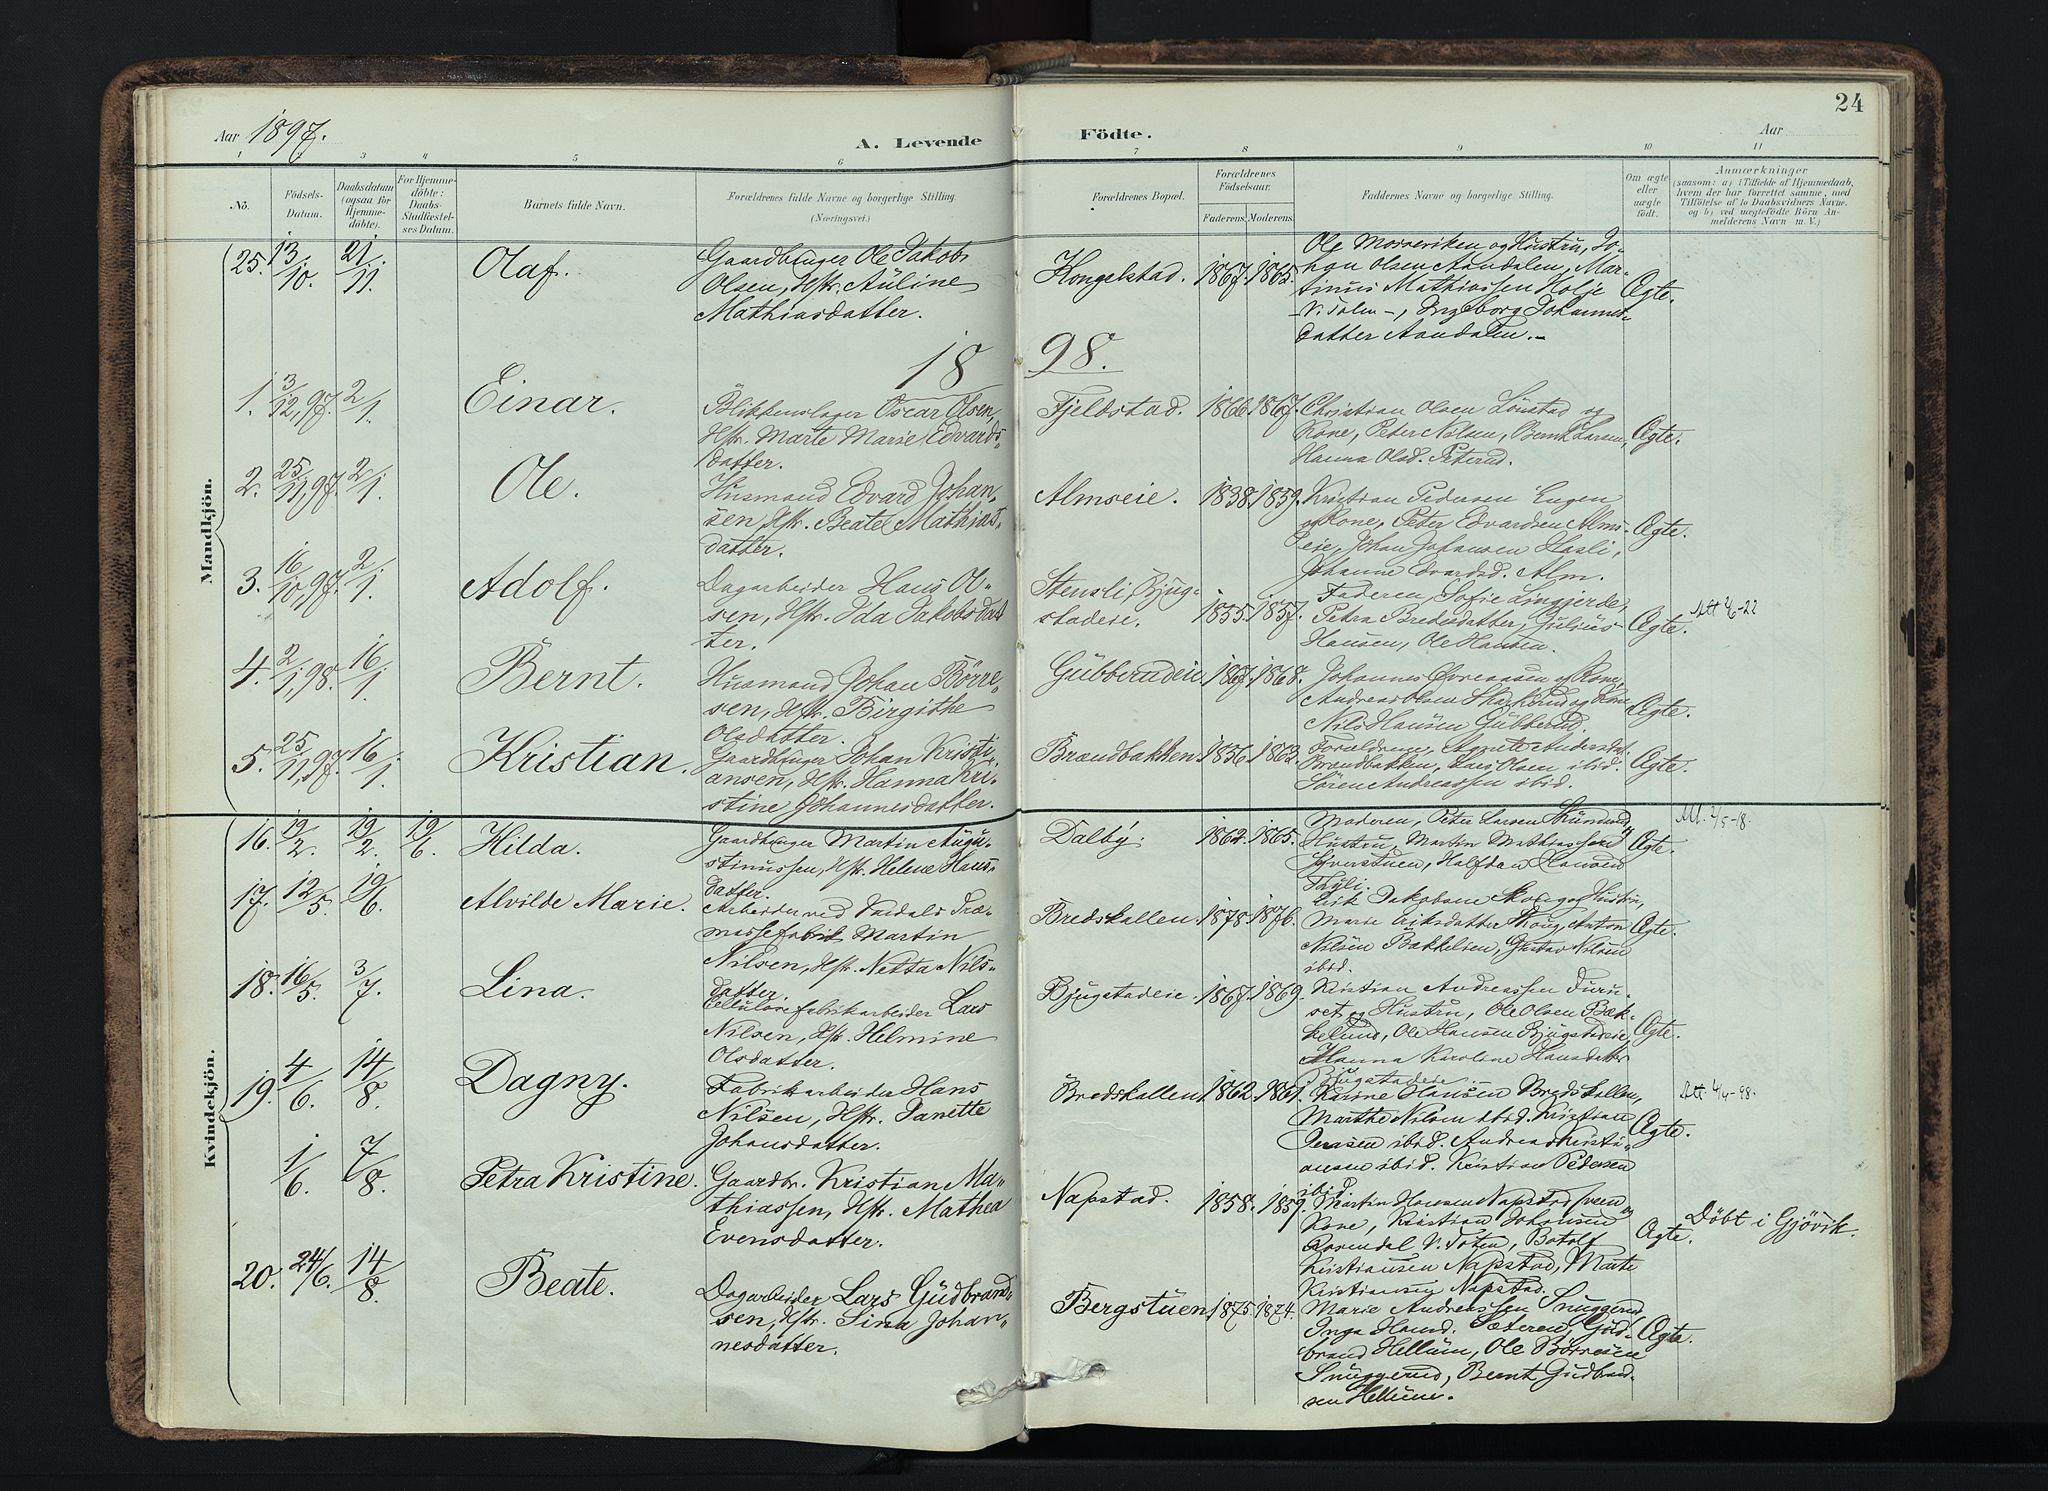 24
Aar 1897.
A. Levende Födte.
Aar
1 2 3 4 5 6 7 8 9 10 11
No.
Födsels-
Datum.
Daabsdatum
(ogsaa for
Hjemme-
döbte).
For Hjemme-
döbte:
Daabs-
Stadfæstel-
ses Datum.
Barnets fulde Navn.
Forældrenes fulde Navne og borgerlige Stilling.
(Næringsvei.)
Forældrenes Bopæl.
Forældrenes
Födselsaar.
Faderens. Moderens.
Faddernes Navne og borgerlige Stilling.
Om ægte
eller
uægte
født.
Anmærkninger
(saasom: a) i Tilfælde af Hjemmedaab,
hvem der har forrettet samme, med
Tilföielse af to Daabsvidners Navne.
og b) ved uegtefödte Börn An-
melderens Navn m. V.)
Mandkjön.
25. 13/10. 21/11. Olaf.
Gaardbruger Ole Jakob
Olsen, Hstr. Auline
Mathiasdatter.
Kongelstad. 1867. 1865.
Ole Morreviken og Hustru, Jo-
han Olsen Aandalen, Mar-
tinus Mathiassen Holje
V. Toten, Ingeborg Johannes-
datter Aandalen.
Ægte.
1898.
1. 3/12, 97. 2/1. Einar.
Blikkenslager Oscar Olsen,
Hstr. Marte Marie Edvards-
datter.
Fjeldstad. 1866 1867.
Christian Olsen Lönstad og
Kone, Peter Nilsen, Bernt Larsen,
Hanna Olsd. Peterud.
Ægte.
2. 25/11, 97. 2/1. Ole.
Husmand Edvard Johan-
sen, Hstr. Beate Mathias-
datter.
Almseie. 1838. 1859.
Kristian Pedersen Engen
og Kone, Peter Edvardsen Alms-
eie, Johan Johansen Hasli,
Johanne Edvardsd. Alm.
Ægte.
3. 16/10, 97. 2/1. Adolf.
Dagarbeider Hans Ol-
sen, Hstr. Ida Jakobsdat-
ter.
Stensli, Bjug-
stadeie. 1855. 1857.
Faderen, Sofie
Petra Bredesdatter, Julius
Hansen, Ole Hansen.
Ægte.
4. 2/1, 98. 16/1. Bernt.
Husmand Johan Börre-
sen, Hstr. Birgithe
Olsdatter.
Gubberudeie. 1867. 1868.
Johannes Evensen og Kone,
Andreas Olsen og Kone
Nils Hansen Gubberud.
Ægte.
5. 25/11, 97. 16/1. Kristian.
Gaardbruger Johan Kristi-
ansen, Hstr. Hanna Kri-
stine Johannesdatter.
Brændbakken. 1856. 1863.
Forældrene, Agnete Andersdat.
Brændbakken, Lars Olsen ibid.
Sören Andreassen ibid.
Ægte.
Kvindekjön.
16. 19/2. 19/2. 19/6. Hilda.
Gaardbruger Martin Augu-
stinussen, Hstr. Helene Hans-
datter.
Dalby. 1862. 1865.
Moderen, Peter Larsen og
Hustru, Martin Mathiassen
Syverstuen, Halfdan Hansen
Thyli.
Ægte.
17. 12/5. 19/6. Alvilde Marie.
Arbeider ved Vardals Træ-
massefabrik Martin
Nilsen, Hstr. Netta Nils-
datter.
Bredskallen. 1878. 1876.
Erik Jakobsen Skoug og Hustru,
Marie Eriksdatter Skoug, Anton
Nilsen Bakkelien, Gustav Nilsen
ibid.
Ægte.
18. 16/5. 3/7. Lina.
Cellulosefabrikarbeider Lars
Nilsen, Hstr. Helmine
Olsdatter.
Bjugstadeie. 1867. 1869.
Kristian Andreassen Furu-
set og Hustru, Ole Olsen Bæk-
kelund, Ole Hansen Bjugstadeie
Hanna Karoline Hansdatter
Bjugstadeie.
Ægte.
19. 4/6. 14/8. Dagny.
Fabrikarbeider Hans
Nilsen, Hstr. Janette
Johansdatter.
Bredskallen. 1862. 1861.
Karine Hansen Bredskallen,
Marthe Nilsen ibid. Kristian
Jensen ibid. Andreas Kristi-
ansen ibid. Kristian Pedersen
ibid.
Ægte.
1/6. 7/8. Petra Kristine.
Gaardbr. Kristian Ma-
thiassen, Hstr. Mathea
Evensdatter.
Napstad. 1858. 1859.
Martin Hansen Napstad og
Kone, Kristian Johansen
Rosendal V. Toten, Botolf
Kristiansen Napstad, Marte
Kristiansen Napstad.
Ægte.
Döbt i Gjövik.
20. 24/6. 14/8. Beate.
Dagarbeider Lars Gudbrand-
sen, Hstr. Lina Johan-
nesdatter.
Bergstuen, 1875. 1874.
Marie Andreassen Snuggerud
Inga Hansd. Sæteren, Gud-
brand Hellum, Ole Börresen
Snuggerud, Bernt Gudbrand-
sen Hellum.
Ægte.